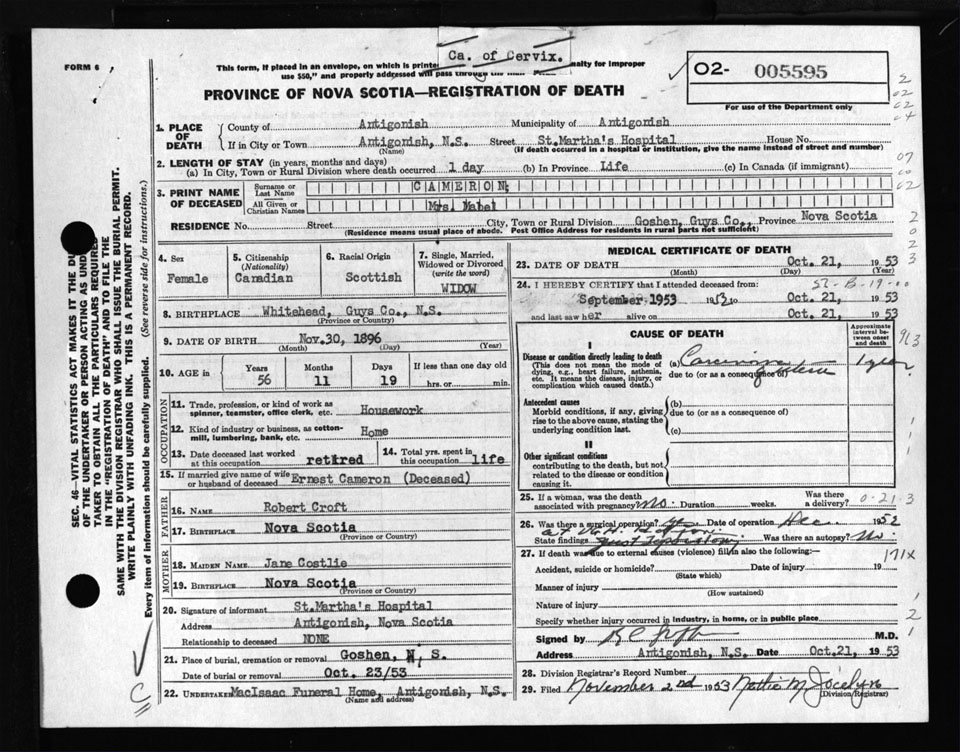 Ca. of Cervix.
FORM 6
This form, if placed in an envelope, on which is printed nalty for improper
use $50," and properly addressed will pass through the mail
PROVINCE OF NOVA SCOTIA—REGISTRATION OF DEATH
O2- 005595
For use of the Department only
1. PLACE OF DEATH
County of Antigonish Municipality of Antigonish
If in City or Town Antigonish, N.S. Street St.Martha's Hospital House No.
(Name) (If death occurred in a hospital or institution, give the name instead of street and number)
2. LENGTH OF STAY (in years, months and days)
(a) In City, Town or Rural Division where death occurred 1 day (b) In Province Life (c) In Canada (if immigrant)
3. PRINT NAME OF DECEASED
Surname or Last Name CAMERON,
All Given or Christian Names Mrs. Mabel
RESIDENCE No. Street City, Town or Rural Division Goshen, Guys Co., Province Nova Scotia
(Residence means usual place of abode. Post Office Address for residents in rural parts not sufficient)
4. Sex Female
5. Citizenship (Nationality) Canadian
6. Racial Origin Scottish
7. Single, Married, Widowed or Divorced (write the word) WIDOW
8. BIRTHPLACE Whitehead, Guys Co., N.S.
(Province or Country)
9. DATE OF BIRTH Nov.30, 1896
(Month) (Day) (Year)
10. AGE in Years 56 Months 11 Days 19 If less than one day old hrs. or min.
OCCUPATION
11. Trade, profession, or kind of work as spinner, teamster, office clerk, etc. Housework
12. Kind of industry or business, as cotton-mill, lumbering, bank, etc. Home
13. Date deceased last worked at this occupation retired
14. Total yrs. spent in this occupation life
15. If married give name of wife or husband of deceased Ernest Cameron (Deceased)
FATHER
16. NAME Robert Croft
17. BIRTHPLACE Nova Scotia
(Province or Country)
MOTHER
18. MAIDEN NAME Jane Costlie
19. BIRTHPLACE Nova Scotia
(Province or Country)
20. Signature of informant St.Martha's Hospital
Address Antigonish, Nova Scotia
Relationship to deceased NONE
21. Place of burial, cremation or removal Goshen, N.S.
Date of burial or removal Oct. 23/53
22. UNDERTAKER MacIsaac Funeral Home, Antigonish, N.S.
(Name and address)
MEDICAL CERTIFICATE OF DEATH
23. DATE OF DEATH Oct. 21, 1953
(Month) (Day) (Year)
24. I HEREBY CERTIFY that I attended deceased from:
September 1953 1953 to Oct. 21, 1953
and last saw her alive on Oct. 21, 1953
CAUSE OF DEATH
Approximate interval between onset and death
I
Disease or condition directly leading to death
(This does not mean the mode of dying, e.g., heart failure, asthenia, etc. It means the disease, injury, or complication which caused death.)
(a) Carcinoma 1 year
due to (or as a consequence of)
Antecedent causes
Morbid conditions, if any, giving rise to the above cause, stating the underlying condition last.
(b)
due to (or as a consequence of)
(c)
II
Other significant conditions
contributing to the death, but not related to the disease or condition causing it.
25. If a woman, was the death associated with pregnancy? No. Duration weeks. Was there a delivery?
0-21-3
26. Was there a surgical operation? yes Date of operation Dec. 1952
State findings Was there an autopsy? No.
27. If death was due to external causes (violence) fill in also the following:
171X
Accident, suicide or homicide? Date of injury 19
(State which)
Manner of injury
(How sustained)
Nature of injury
Specify whether injury occurred in industry, in home, or in public place
Signed by M.D.
Address Antigonish, N.S. Date Oct.21, 1953
28. Division Registrar's Record Number
29. Filed November 2nd 1953 Nattie M. Jocelyn
(Division Registrar)
SEC. 46—VITAL STATISTICS ACT MAKES IT THE DU
OF THE UNDERTAKER OR PERSON ACTING AS UND
TAKER TO OBTAIN ALL THE PARTICULARS REQUIRED
IN THE "REGISTRATION OF DEATH" AND TO FILE THE
SAME WITH THE DIVISION REGISTRAR WHO SHALL ISSUE THE BURIAL PERMIT.
WRITE PLAINLY WITH UNFADING INK. THIS IS A PERMANENT RECORD.
Every item of information should be carefully supplied. (See reverse side for instructions.)